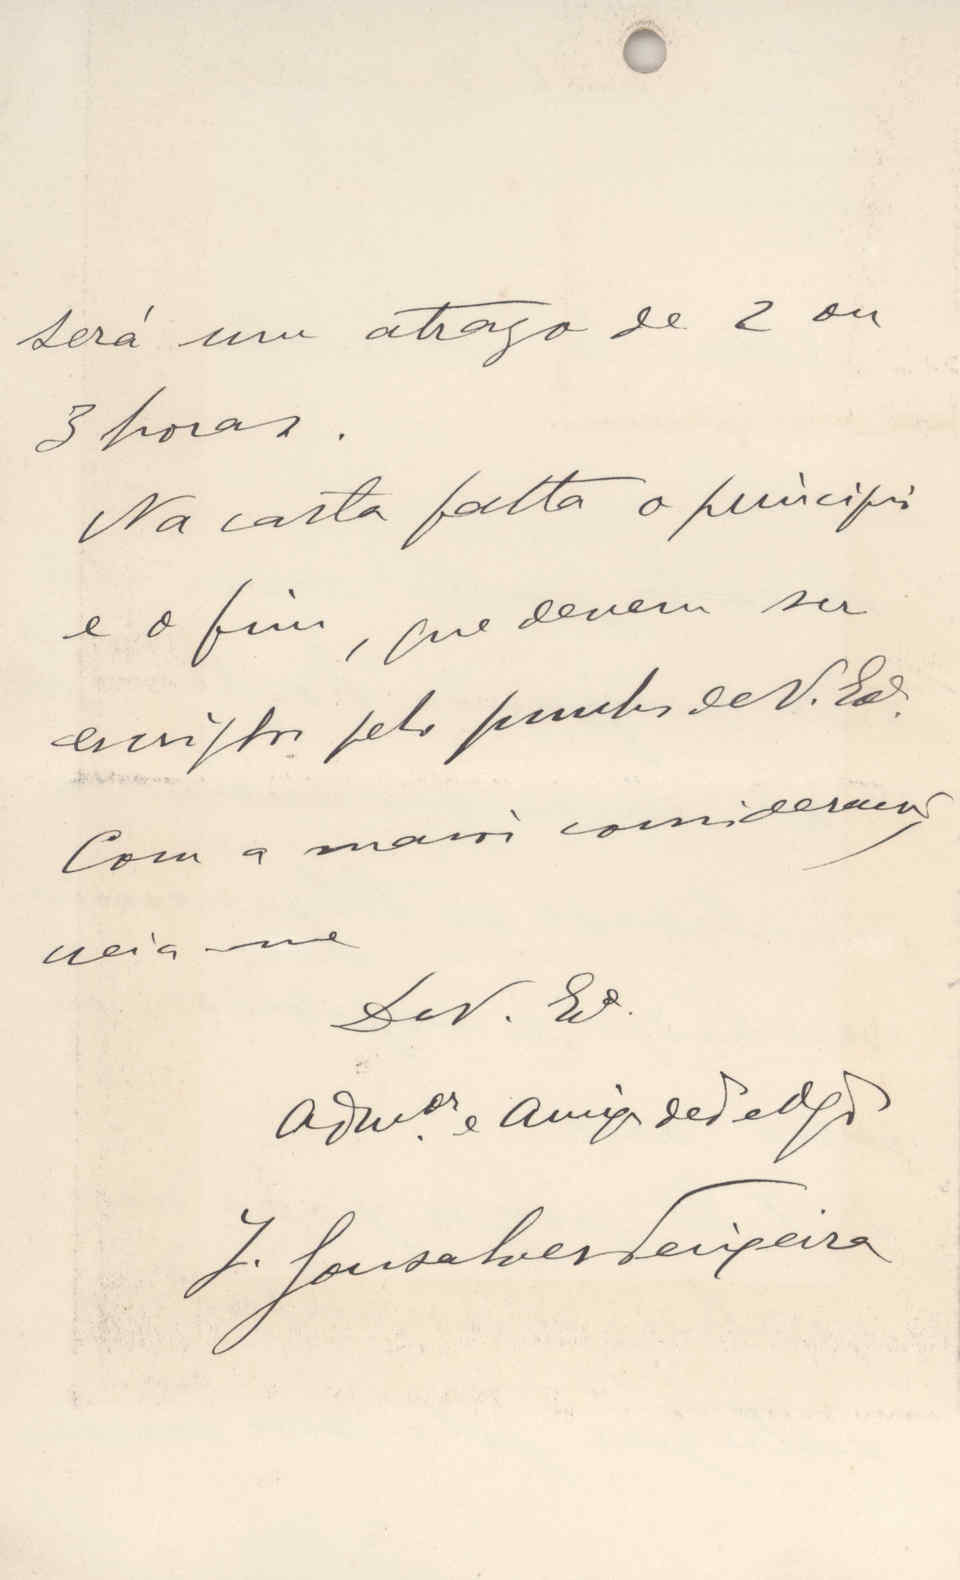 será um atrazo de 2 ou
3 horas.
Na carta falta o principio
e o fim, que devem ser
escriptos pelo punho de V. Exª.
Com a maior consideração
creia-me
De V. Exª.
Admºr. e Amigo
J. Gonsalves Teixeira